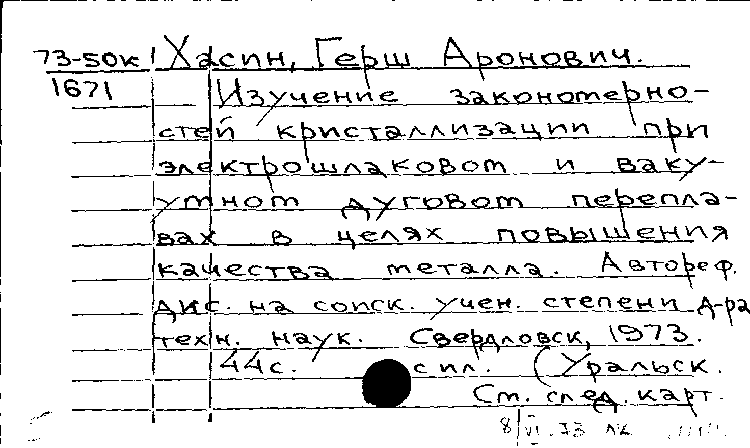 73-50к Хасин, Герш Аронович.
1671 Изучение закономерно-
стей кристаллизации при
электрошлаковом и ваку-
умном дуговом перепла-
вах в целях повышения
качества металла. Автореф.
дис. на соиск. учен. степени д-ра
техн. наук. Свердловск, 1973.
44с. с ил. (Уральск.
См. след. карт.
8/VI.73